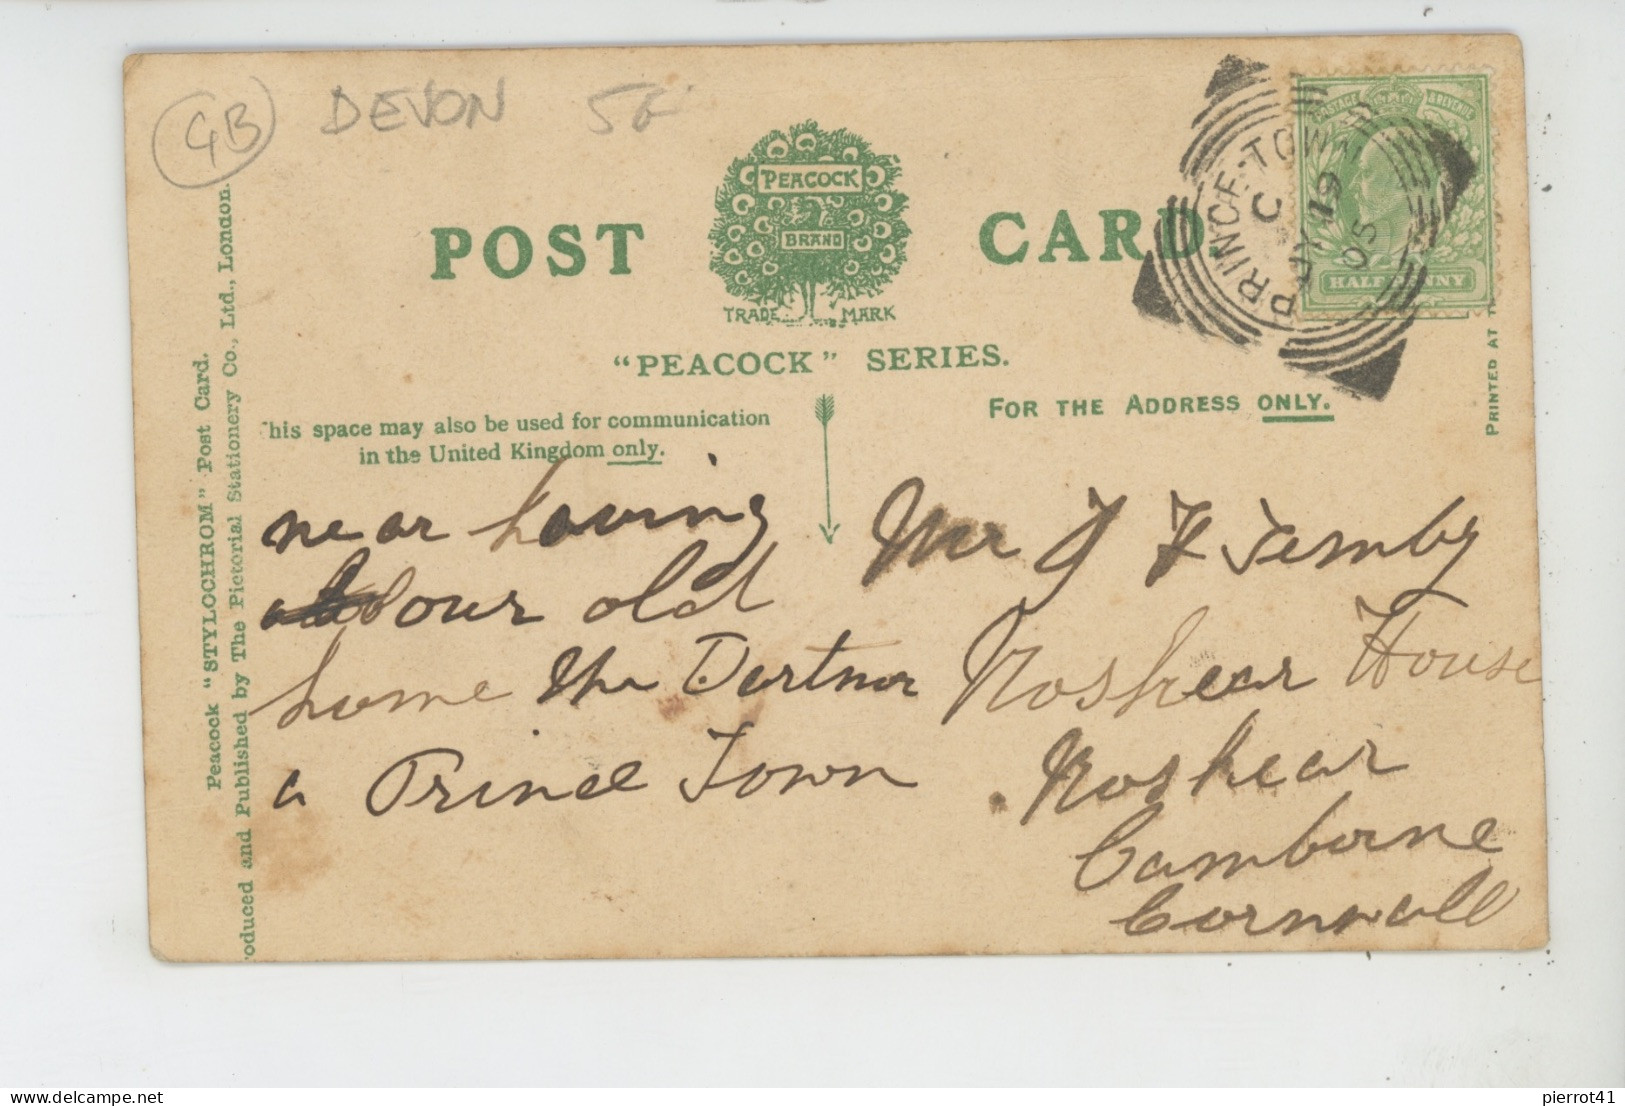 GB DEVON 5€
POST CARD.
PEACOCK
BRAND
TRADE MARK
"PEACOCK" SERIES.
POSTAGE & REVENUE
HALFPENNY
PRINCE-TOWN
C
JY 19
05
PRINTED AT
FOR THE ADDRESS ONLY.
his space may also be used for communication
in the United Kingdom only.
Peacock "STYLOCHROM" Post Card.
oduced and Published by The Pictorial Stationery Co., Ltd., London.
near having
our old
home the Dartmor
a Prince Town
Mr J F Temby
Roskear House
Roskear
Camborne
Cornwall
pierrot41